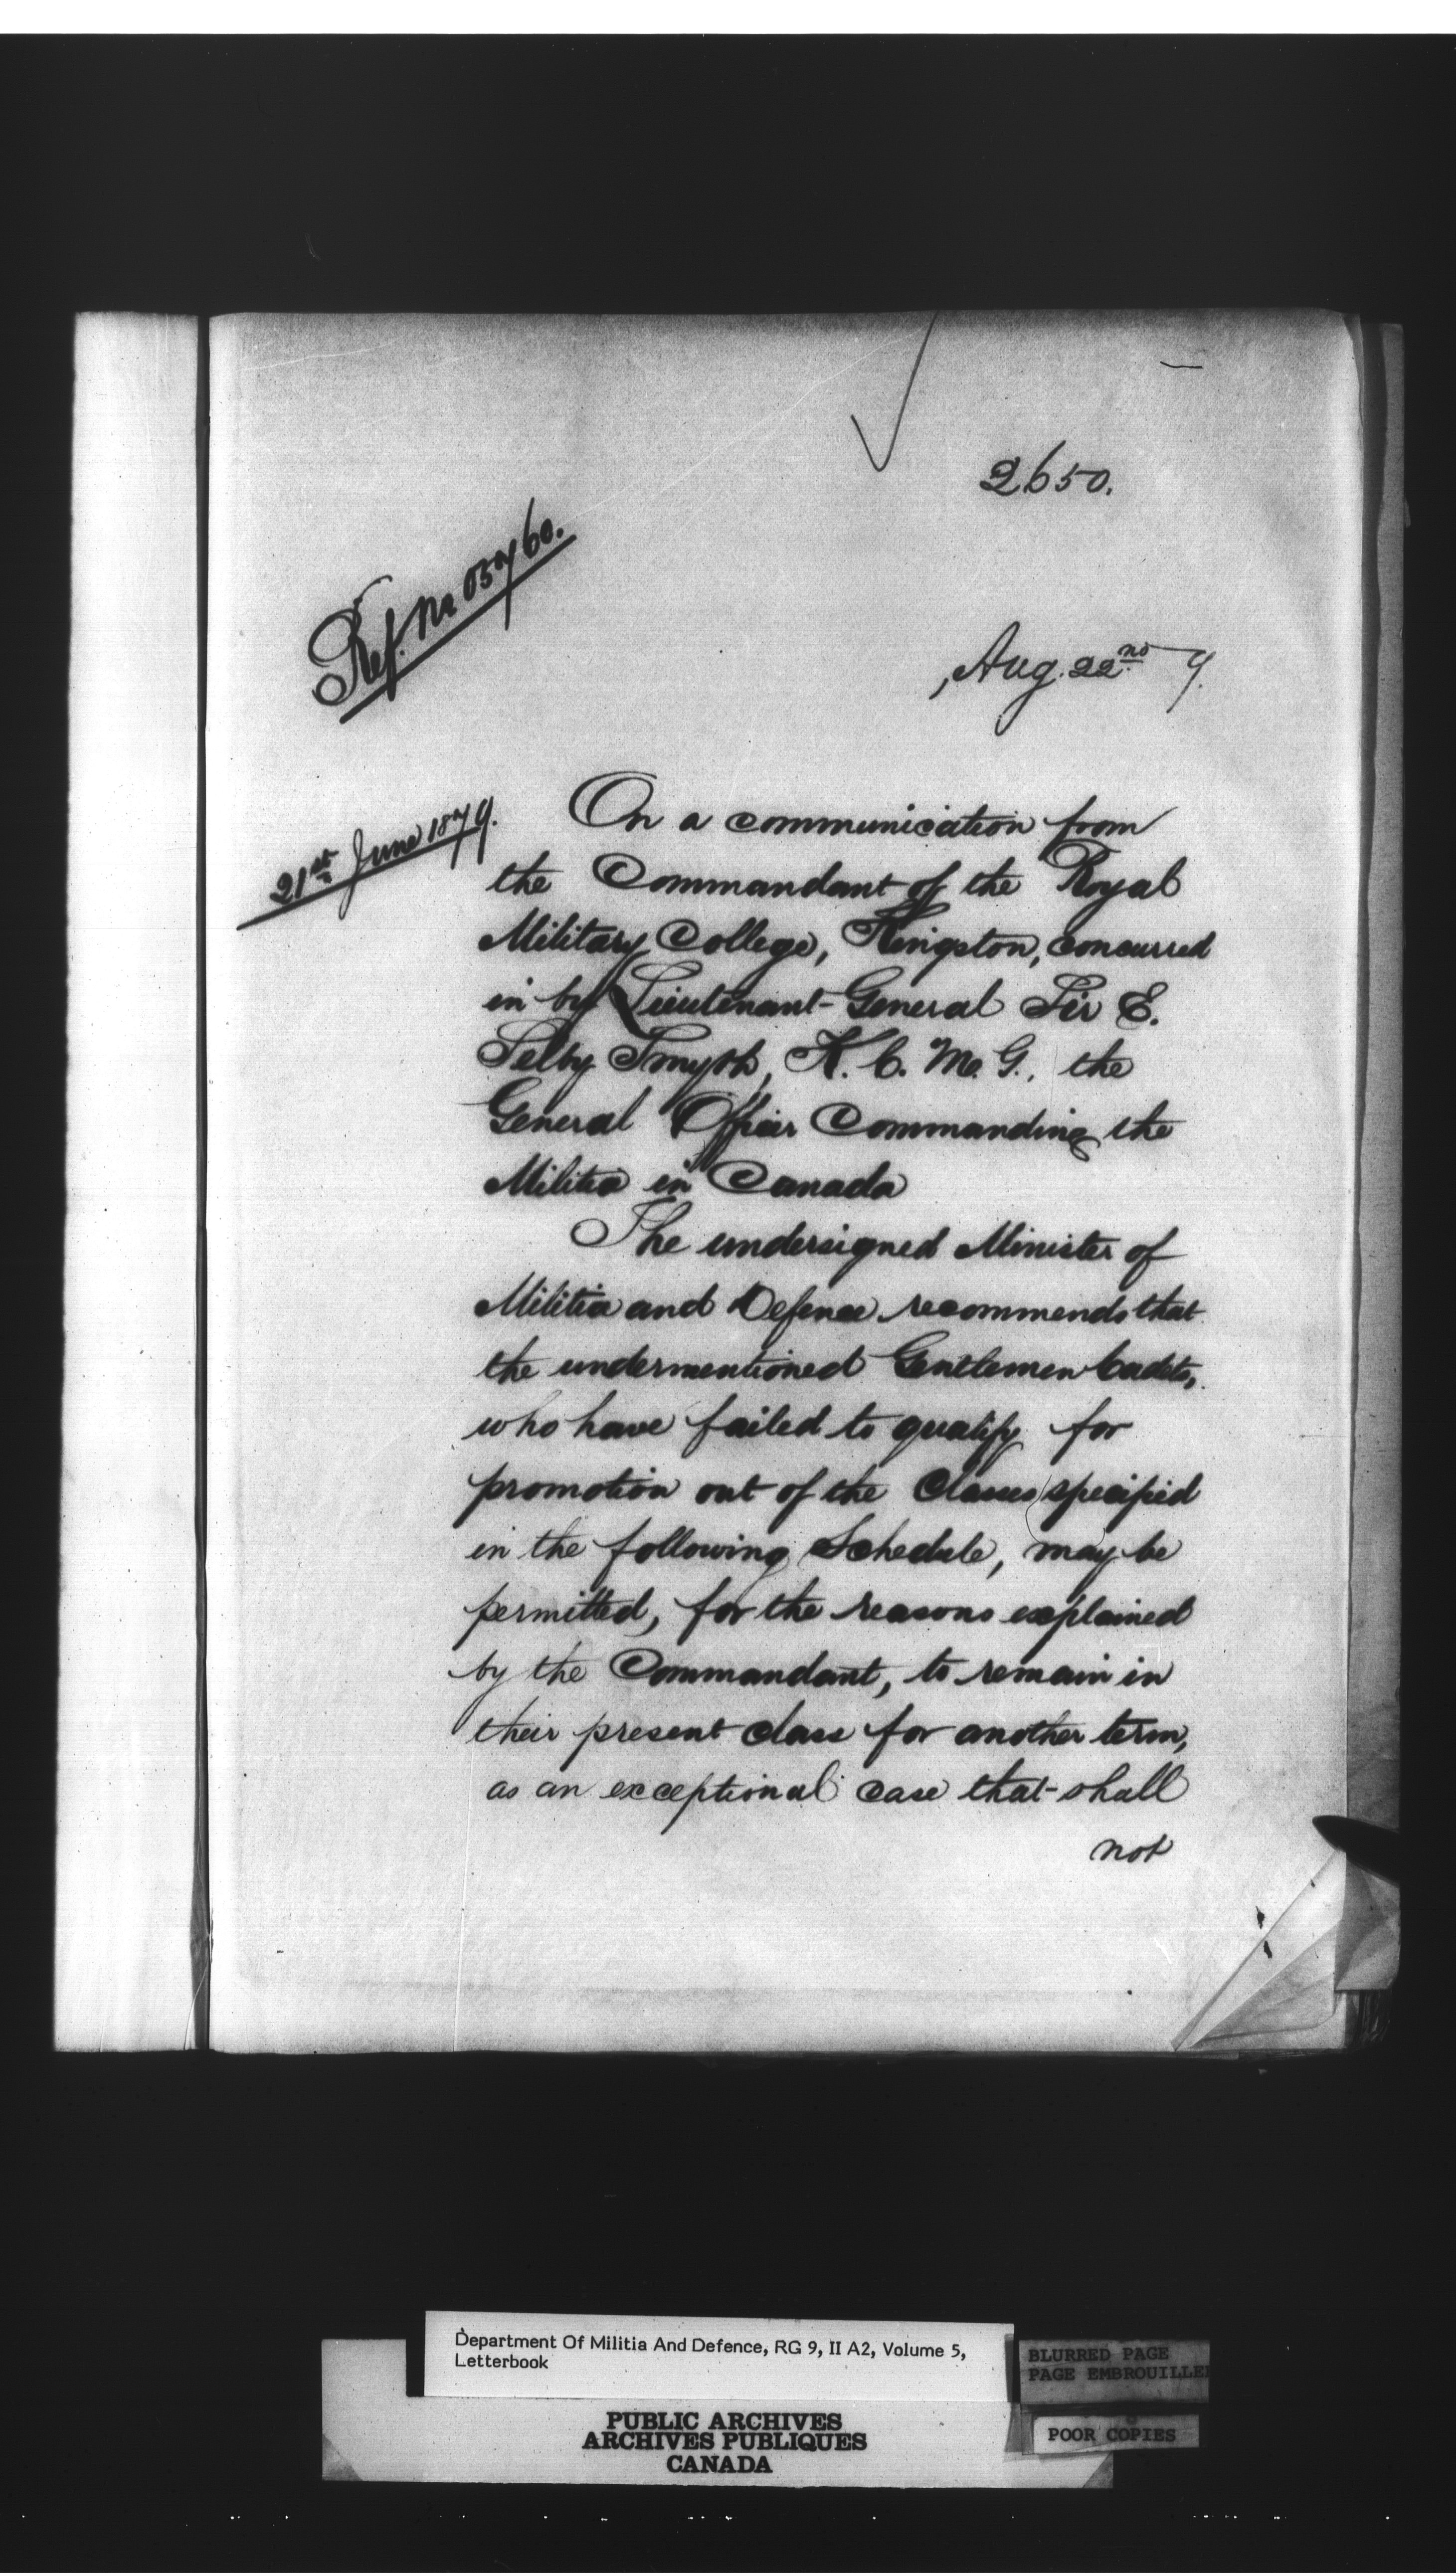 2650.
Ref. No 05760.
Aug. 22nd 9.
21st June 1879.
On a communication from
the Commandant of the Royal
Military College, Kingston, concurred
in by Lieutenant-General Sir E.
Selby Smyth, K. C. M. G., the
General Officer Commanding the
Militia in Canada
The undersigned Minister of
Militia and Defence recommends that
the undermentioned Gentlemen Cadets,
who have failed to qualify for
promotion out of the Classes specified
in the following Schedule, may be
permitted, for the reasons explained
by the Commandant, to remain in
their present class for another term,
as an exceptional case that shall
not
Department Of Militia And Defence, RG 9, II A2, Volume 5,
Letterbook
BLURRED PAGE
PAGE EMBROUILLE
PUBLIC ARCHIVES
ARCHIVES PUBLIQUES
CANADA
POOR COPIES